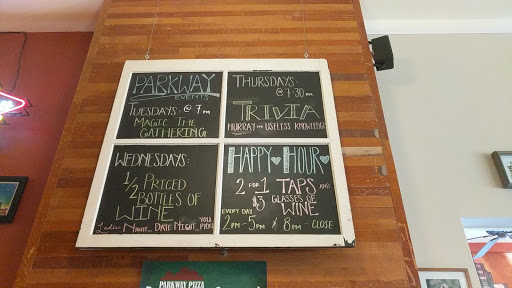 PARKWAY
EVENTS
TUESDAYS: @ 7PM
MAGIC THE
GATHERING
THURSDAYS:
@ 7:30PM
TRIVIA
HURRAY FOR USELESS KNOWLEDGE
WEDNESDAYS:
1/2 PRICED
BOTTLES OF
WINE
Ladies NIGHT.. DATE NIGHT.. YOU PICK!
HAPPY HOUR
2 FOR 1 TAPS AND
$3 GLASSES OF
WINE
EVERY DAY
2PM-5PM & 8PM - CLOSE
PARKWAY PIZZA